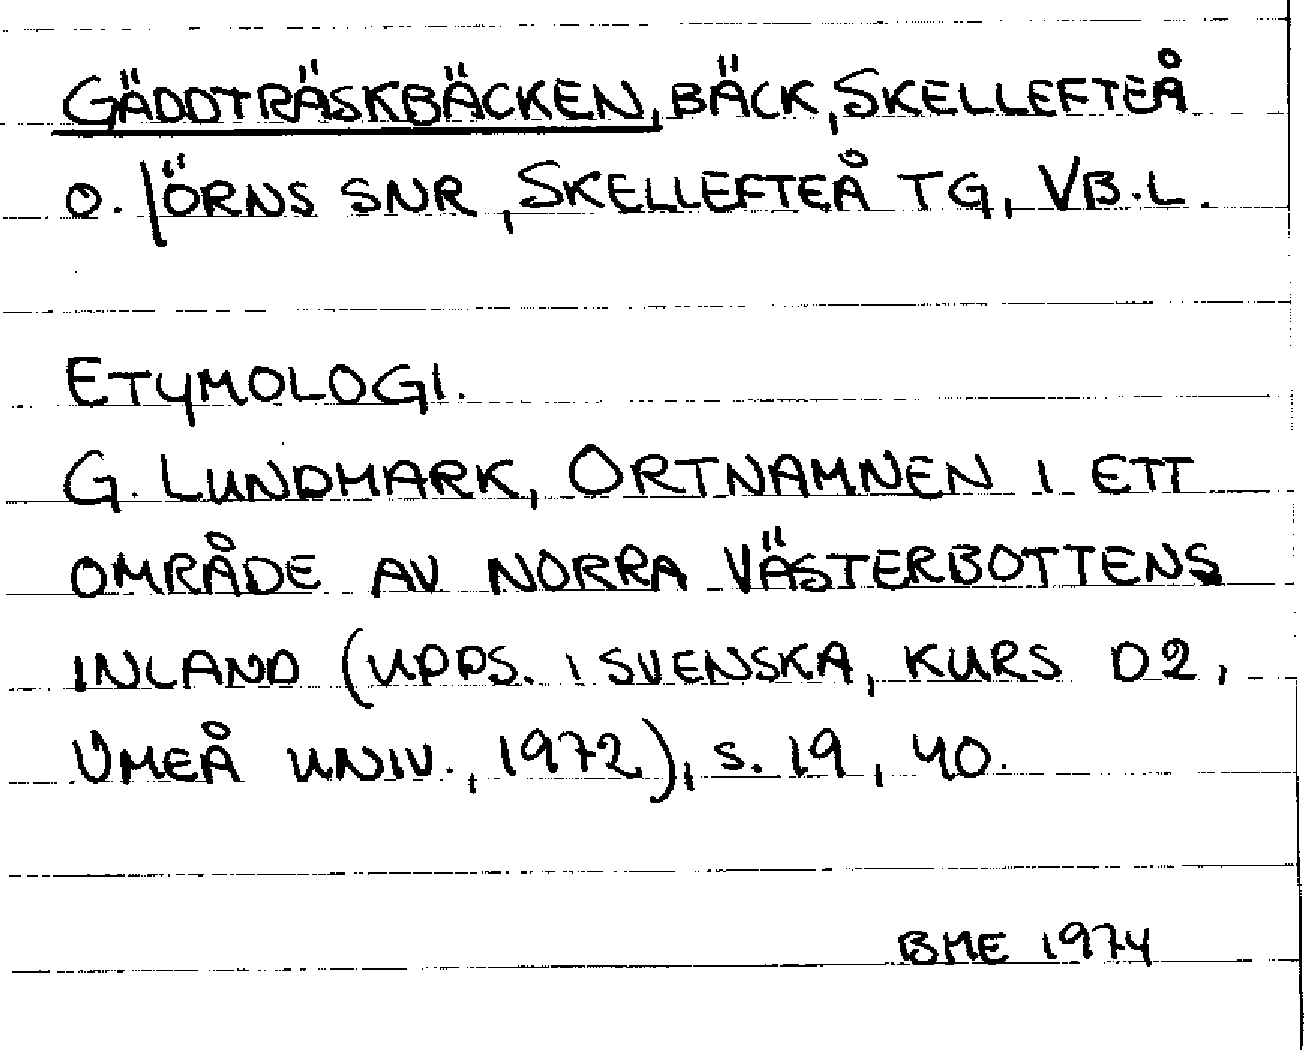 GÄDDTRÄSKBÄCKEN, BÄCK, SKELLEFTEÅ
O. JÖRNS SNR, SKELLEFTEÅ TG, VB.L.
ETYMOLOGI.
G. LUNDMARK, ORTNAMNEN I ETT
OMRÅDE AV NORRA VÄSTERBOTTENS
INLAND (UPPS. I SVENSKA, KURS D2,
UMEÅ UNIV., 1972), S. 19, 40.
BME 1974